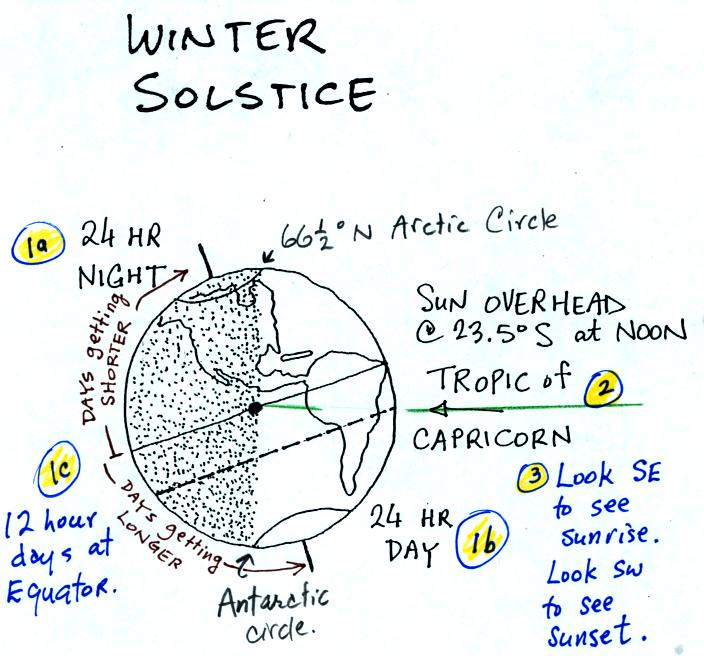 WINTER
SOLSTICE
1a
24 HR
NIGHT
66½°N Arctic Circle
SUN OVERHEAD
@ 23.5°S at NOON
TROPIC of
2
CAPRICORN
DAYS getting
SHORTER
1c
12 hour
days at
Equator.
DAYS getting
LONGER
24 HR
DAY
1b
3 Look SE
to see
sunrise.
Look SW
to see
sunset.
Antarctic
circle.